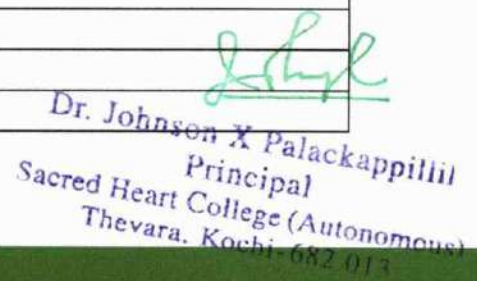 Dr. Johnson X Palackappillil
Principal
Sacred Heart College (Autonomous)
Thevara, Kochi-682 013